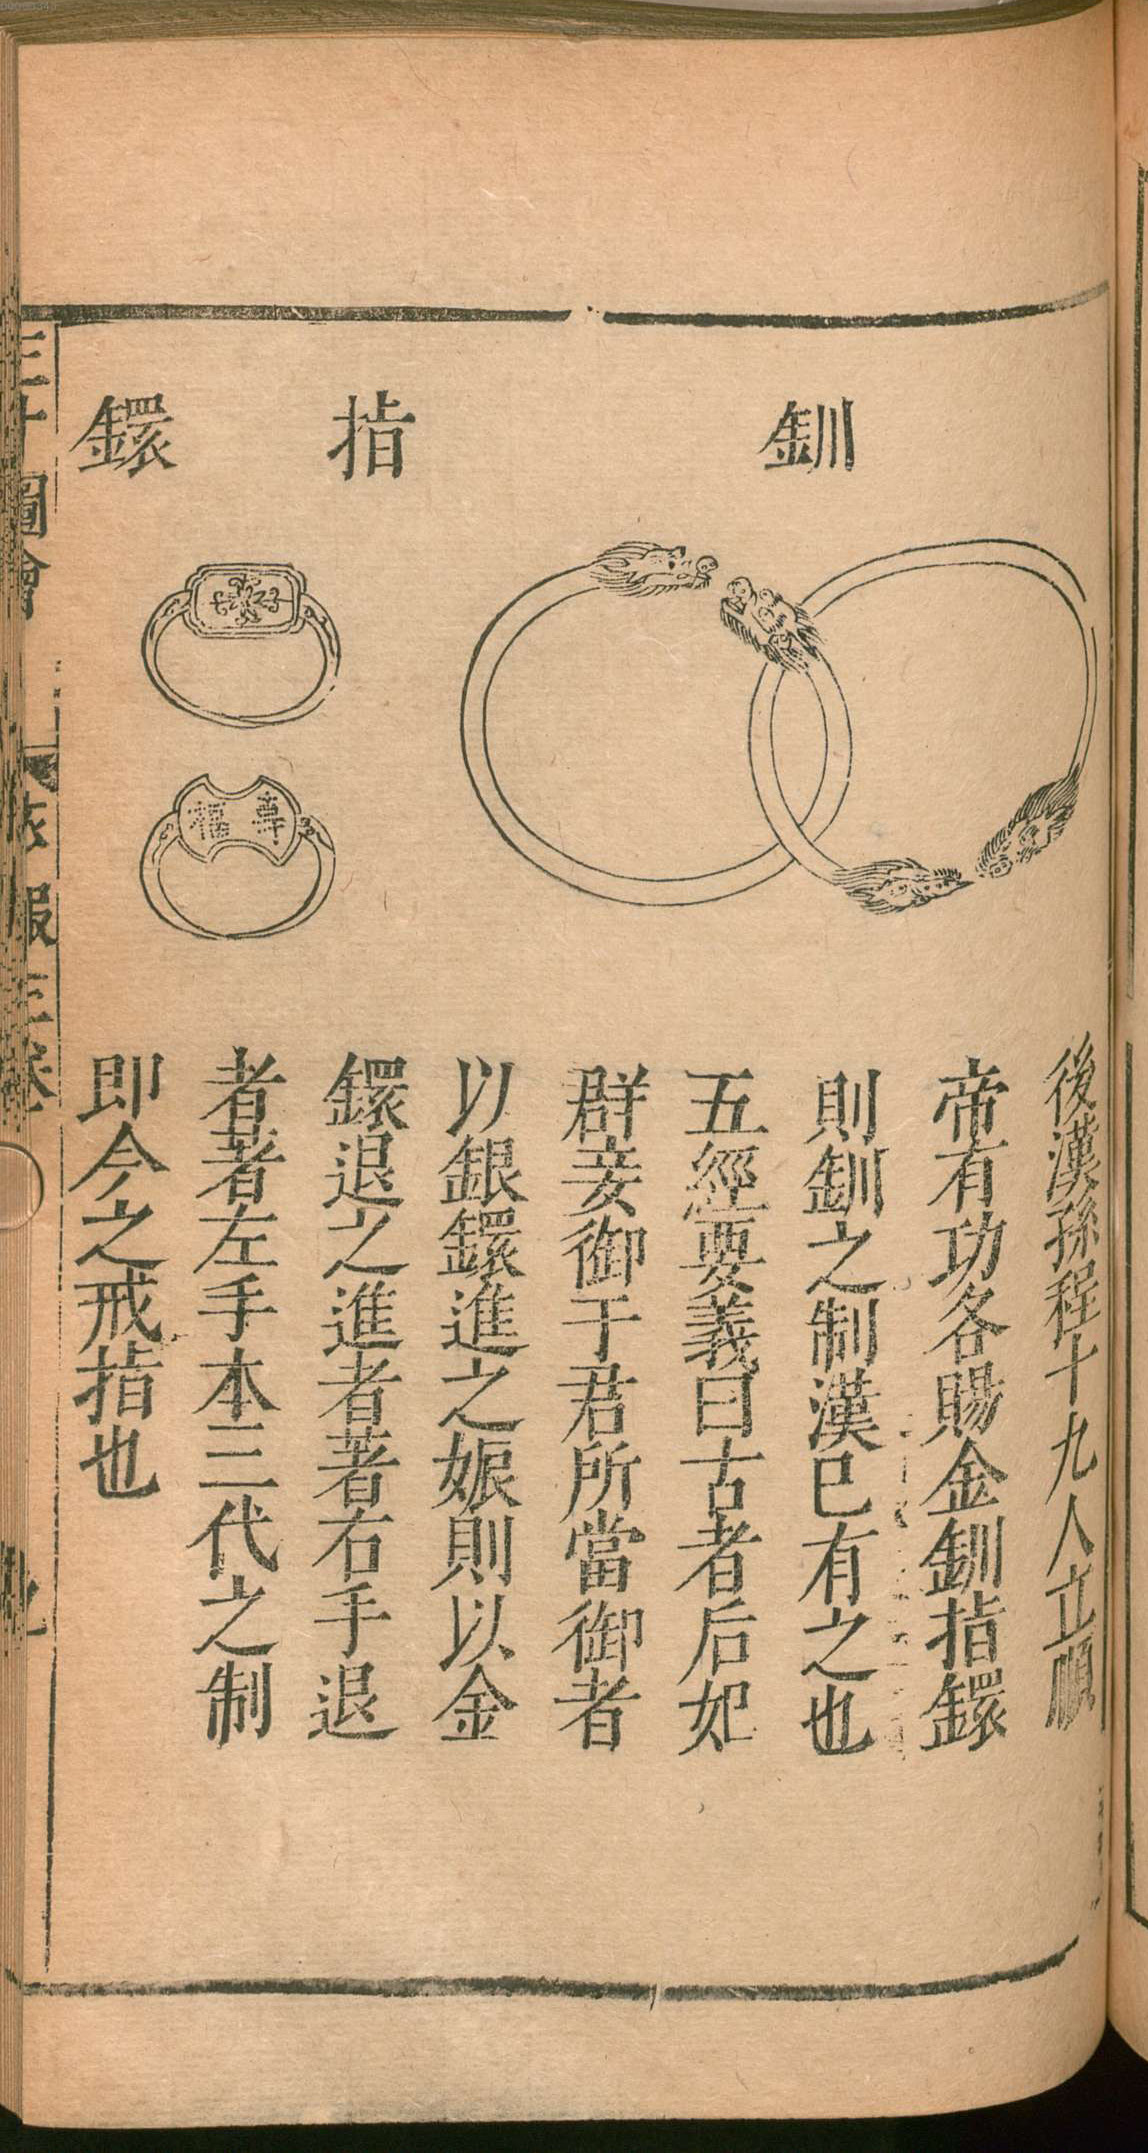 釧
指鐶
壽福
後漢孫程十九人立順
帝有功各賜金釧指鐶
則釧之制漢已有之也
五經要義曰古者后妃
群妾御于君所當御者
以銀鐶進之娠則以金
鐶退之進者著右手退
者著左手本三代之制
即今之戒指也
三才圖會
衣服三卷